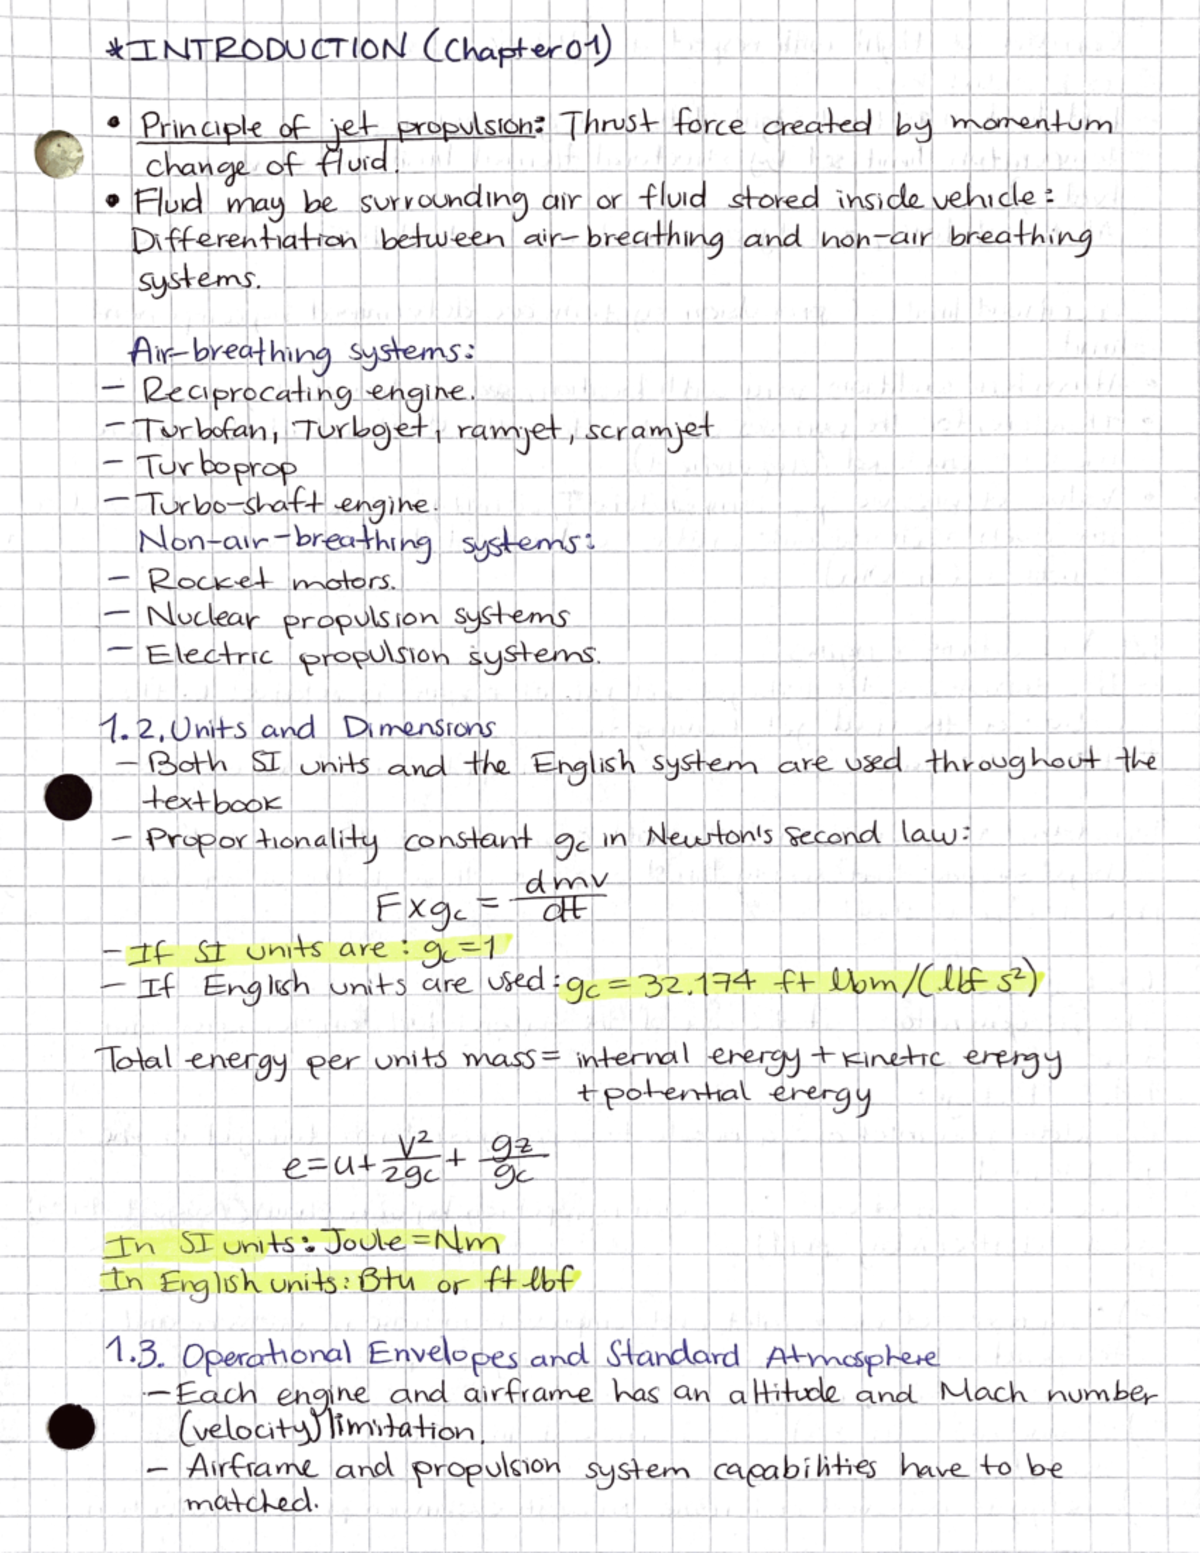 *INTRODUCTION (Chapter 01)
• Principle of jet propulsion: Thrust force created by momentum
change of fluid.
• Fluid may be surrounding air or fluid stored inside vehicle:
Differentiation between air-breathing and non-air breathing
systems.
Air-breathing systems:
- Reciprocating engine.
- Turbofan, Turbojet, ramjet, scramjet
- Turboprop
- Turbo-shaft engine.
Non-air-breathing systems:
- Rocket motors.
- Nuclear propulsion systems
- Electric propulsion systems.
1.2. Units and Dimensions
- Both SI units and the English system are used throughout the
textbook
- Proportionality constant gc in Newton's second law:
F x gc = dmv/dt
- If SI units are : gc=1
- If English units are used: gc = 32.174 ft lbm/(lbf s²)
Total energy per units mass = internal energy + kinetic energy
+ potential energy
e = u + V²/2gc + gz/gc
In SI units: Joule = Nm
In English units: Btu or ft lbf
1.3. Operational Envelopes and Standard Atmosphere
- Each engine and airframe has an altitude and Mach number
(velocity) limitation.
- Airframe and propulsion system capabilities have to be
matched.